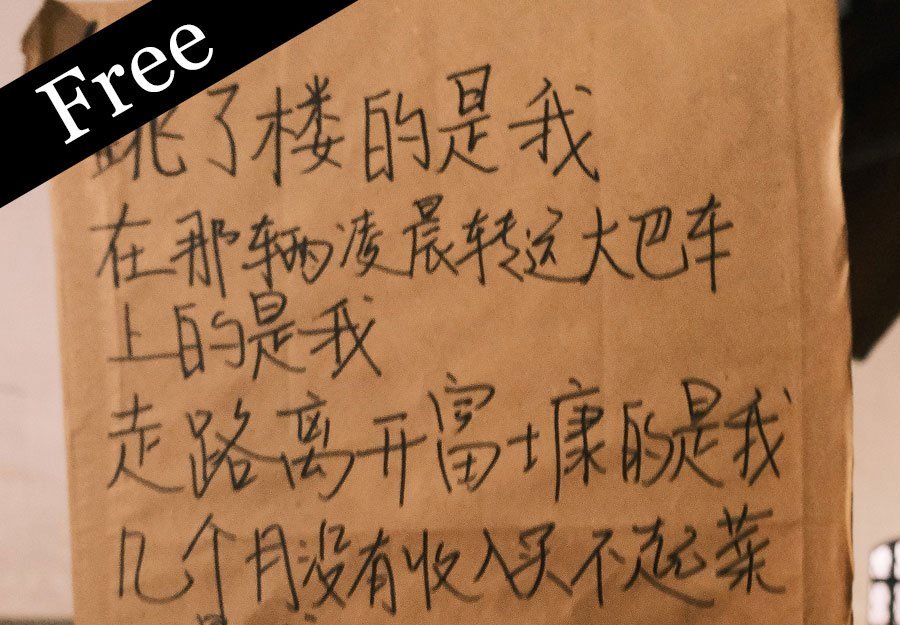 Free
跳了楼的是我
在那辆凌晨转运大巴车
上的是我
走路离开富士康的是我
几个月没有收入买不起菜